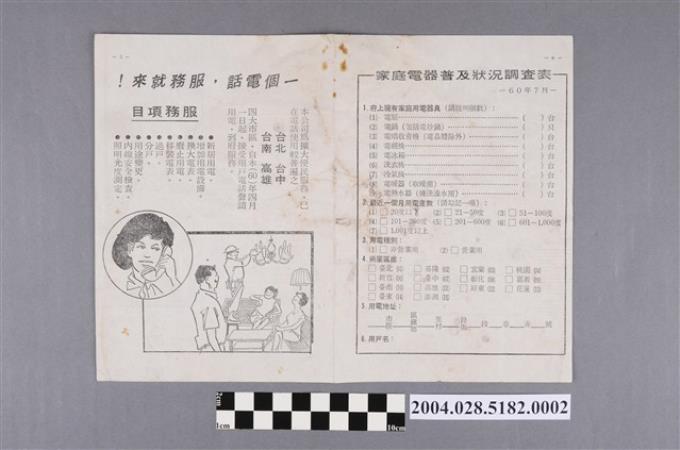 一個電話，服務就來！
本公司為擴大便民服務，已
在電話使用較普遍之
台北 台中
台南 高雄
四大市區，自本(60)年四月
一日起，接受用戶電話聲請
用電，到府服務。
服務項目
●新居用電。
●增加用電設備。
●廢止用電。
●移裝電表。
●換大電表。
●過戶。
●分戶。
●用途變更。
●內線安全檢查。
●照明光度測定。
家庭電器普及狀況調查表
—60年7月—
1. 府上擁有家庭用電器具（請說明個數）：
(1) 電扇 ( ) 台
(2) 電鍋（包括電炒鍋） ( ) 只
(3) 電唱收音機（電晶體除外） ( ) 台
(4) 電視機 ( ) 台
(5) 電冰箱 ( ) 台
(6) 洗衣機 ( ) 台
(7) 冷氣機 ( ) 台
(8) 電暖器（取暖用） ( ) 台
(9) 電熱水器（燒洗澡水用） ( ) 台
2. 最近一個月用電度數（請勾記一項）：
(1) □ 20度以下 (2) □ 21～50度 (3) □ 51～100度
(4) □ 101～200度 (5) □ 201～600度 (6) □ 601～1,000度
(7) □ 1,001度以上
3. 用電種別：
(1) □ 非營業用 (2) □ 營業用
4. 所屬區處：
□ 臺北 □ 基隆 □ 宜蘭 □ 桃園
□ 新竹 □ 臺中 □ 彰化 □ 嘉義
□ 臺南 □ 高雄 □ 屏東 □ 花蓮
□ 臺東 □ 澎湖
5. 用電地址：
市 縣 區 鎮 鄉 里 村 路 街 段 巷 弄 號
6. 用戶名：
1cm
10cm
2004.028.5182.0002